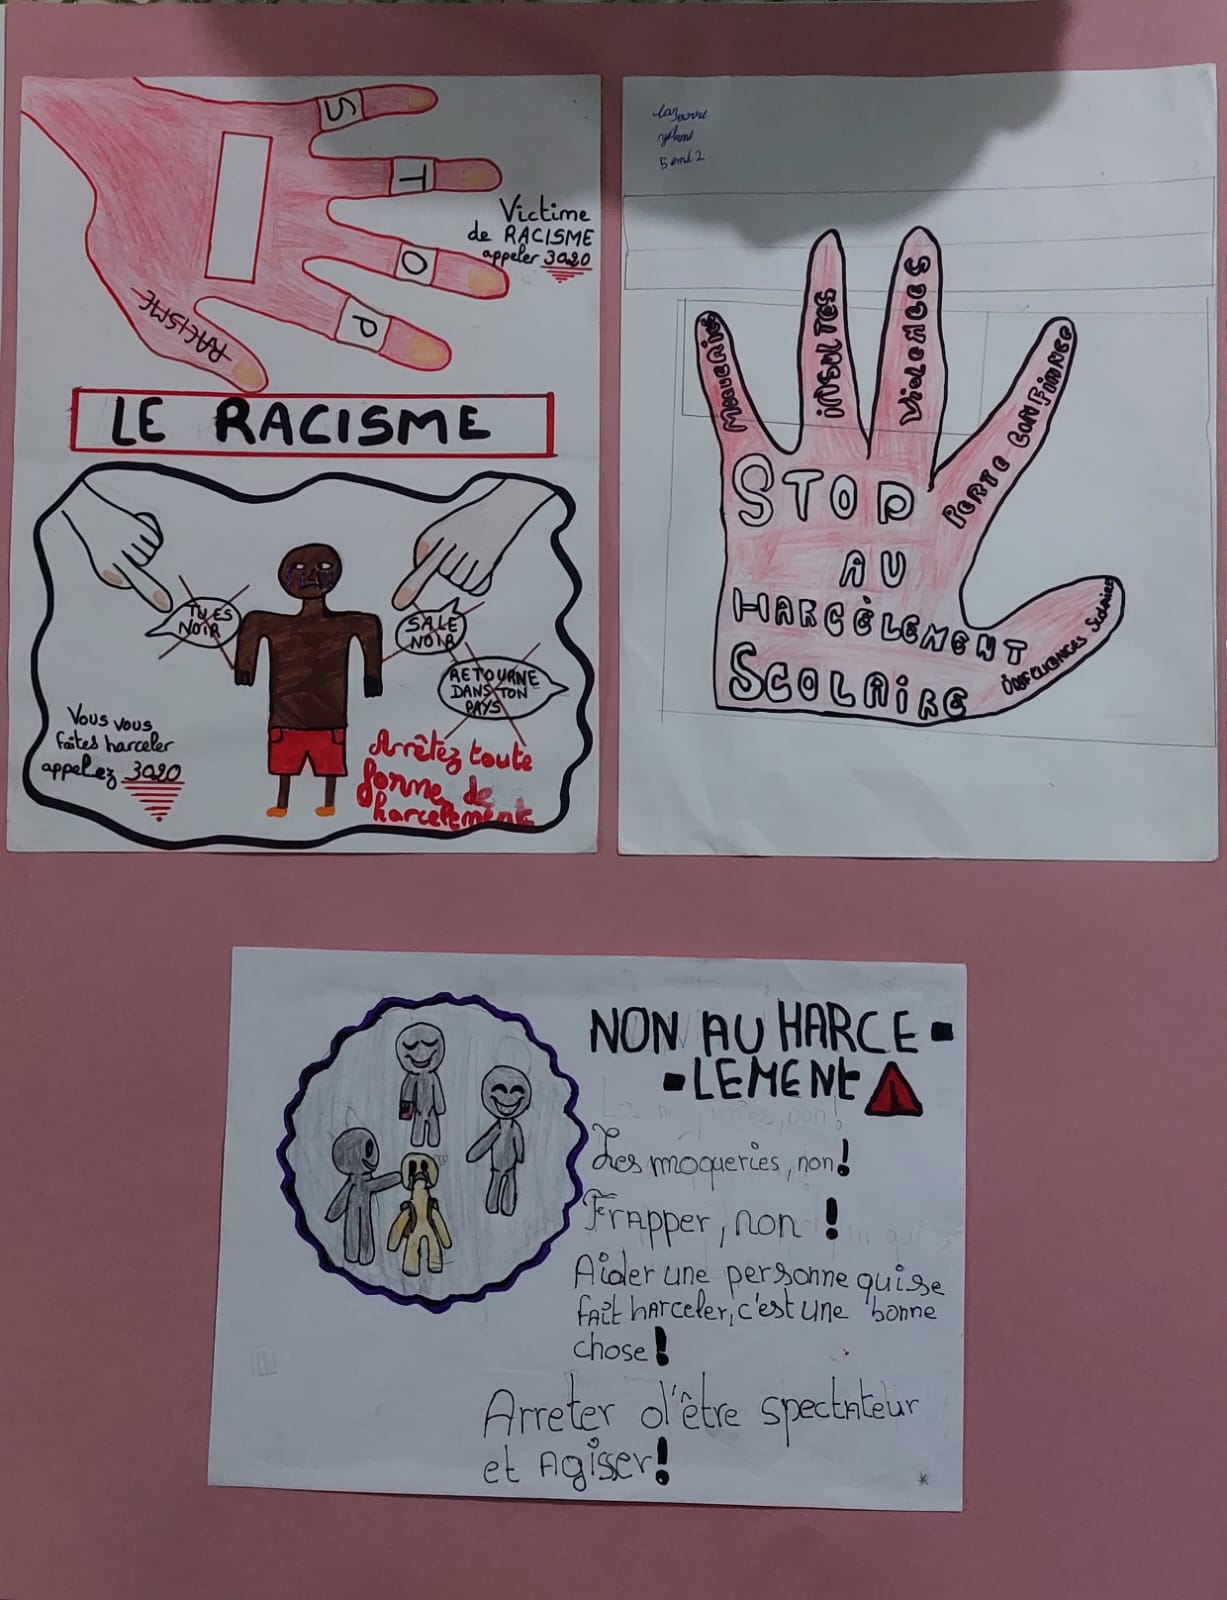 S
T
O
P
RACISME
Victime
de RACISME
appeler 3020
LE RACISME
TU ES
NOIR
SALE
NOIR
RETOURNE
DANS TON
PAYS
Vous vous
faites harceler
appelez 3020
Arrêtez toute
forme de
harcelement
5 emé 2
INSULTES
ViOLENCES
PERTE CONFIANCE
STOP
AU
HARCÈLEMENT
SCOLAIRE
iNFLUENCES Scolaire
NON AU HARCE-
-LEMENt
Les moqueries, non!
Frapper, non !
Aider une personne qui se
fait harceler, c'est une bonne
chose!
Arreter d'être spectateur
et Agisser!